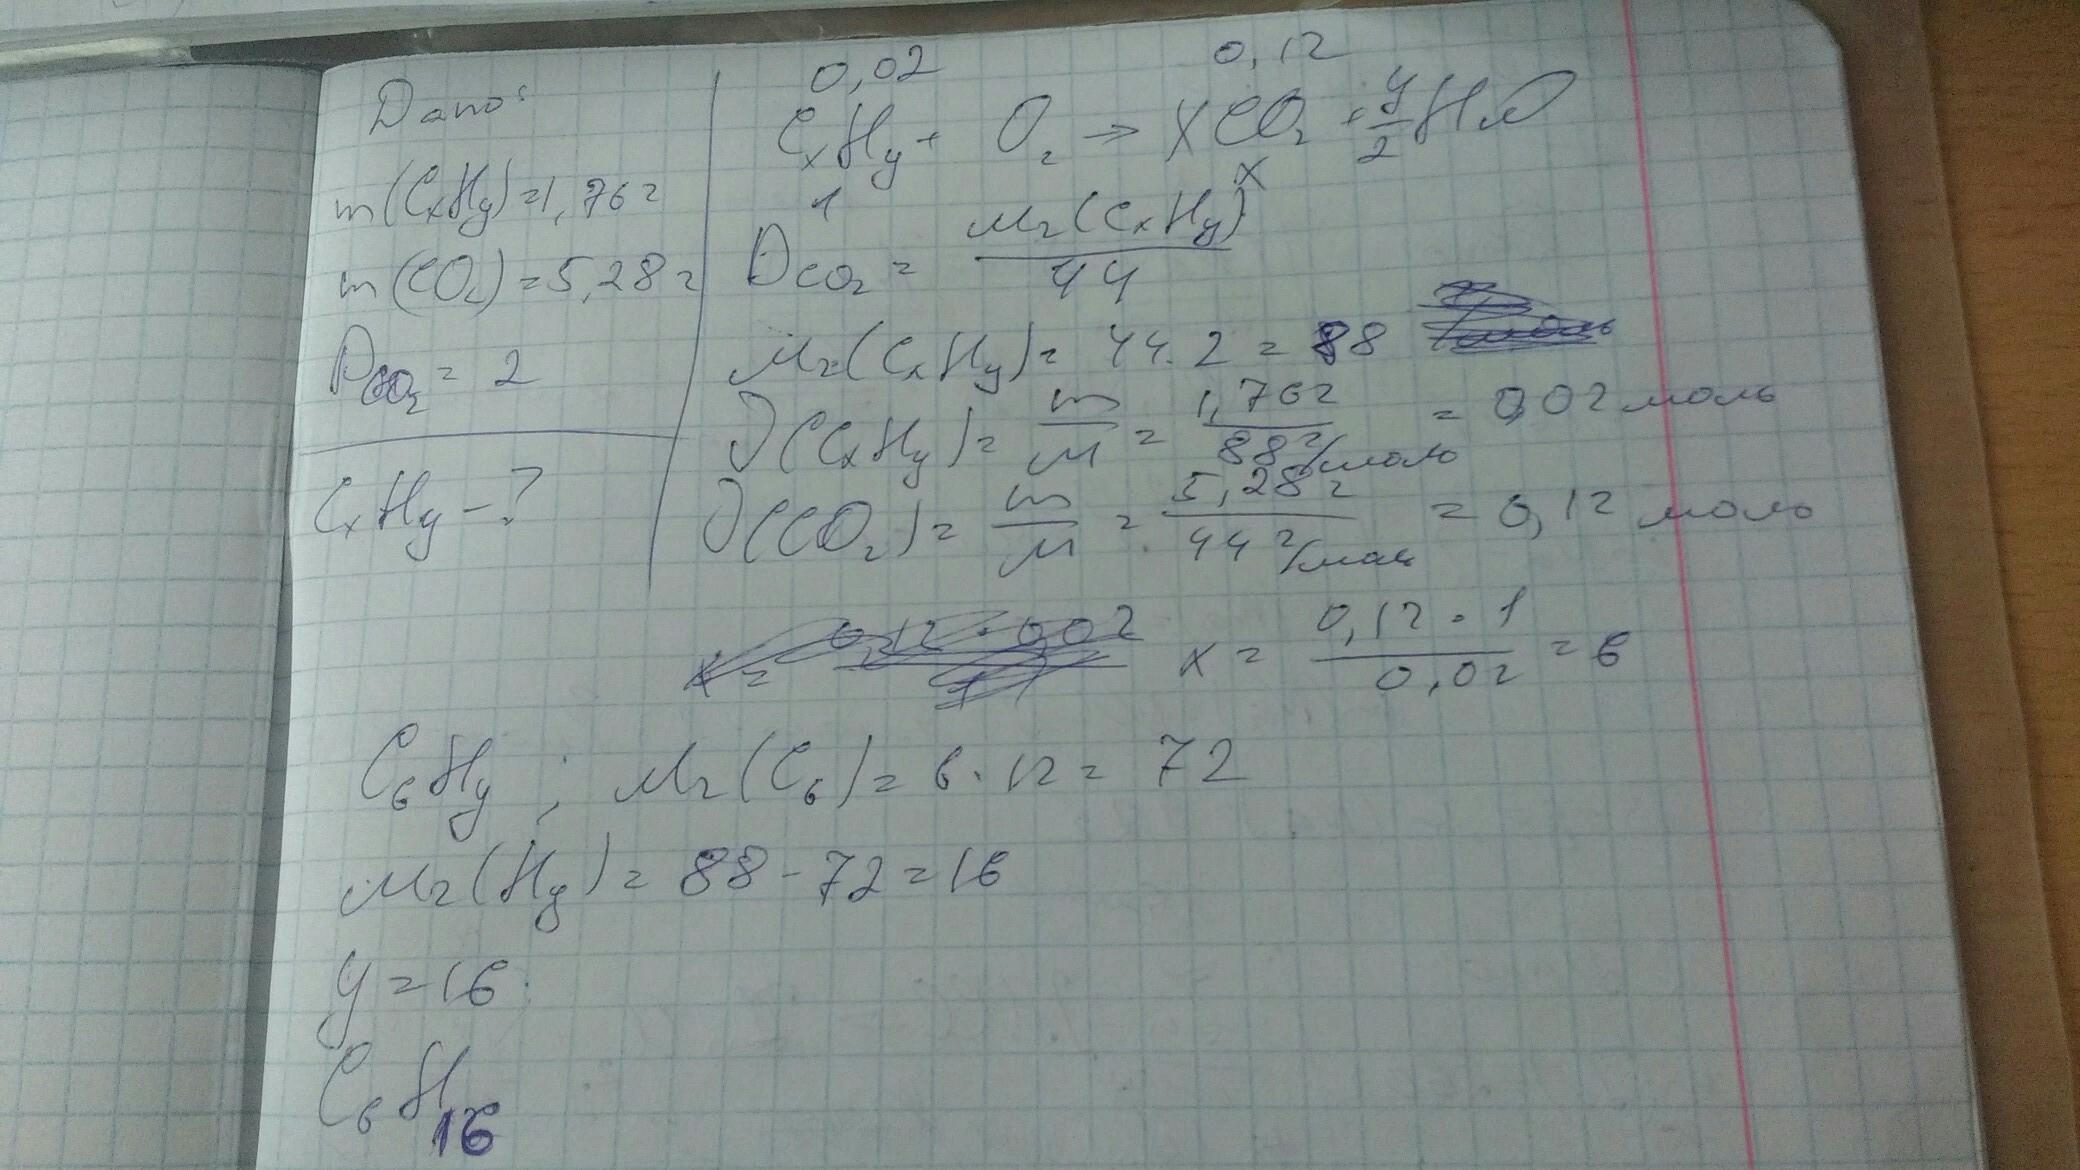 Дано:
m(CxHy)=1,76г
m(CO₂)=5,28г
DCO₂=2
CxHy-?
0,02 0,12
CxHy+ O₂→XCO₂+y/2H₂O
1 x
DCO₂=Mr(CxHy)/44
Mr(CxHy)=44·2=88
ν(CxHy)=m/M=1,76г/88г/моль=0,02моль
ν(CO₂)=m/M=5,28г/44г/моль=0,12моль
x=0,12·1/0,02=6
C₆Hy; Mr(C₆)=6·12=72
Mr(Hy)=88-72=16
y=16
C₆H₁₆